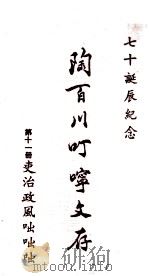 七十誕辰紀念
陶百川叮嚀文存
第十一冊吏治政風咄咄咄